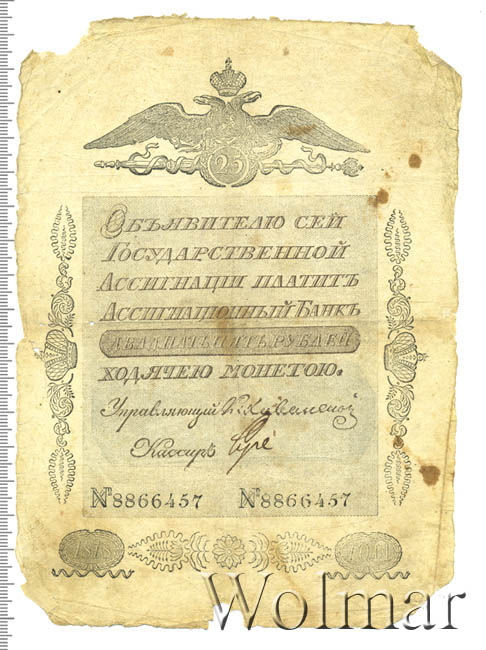 25
Объявителю сей
Государственной
Ассигнацiи платитъ
Ассигнацiонный Банкъ
двадцать пять рублей
ходячею монетою.
Управляющий
Кассиръ
№8866457 №8866457
1818
Wolmar